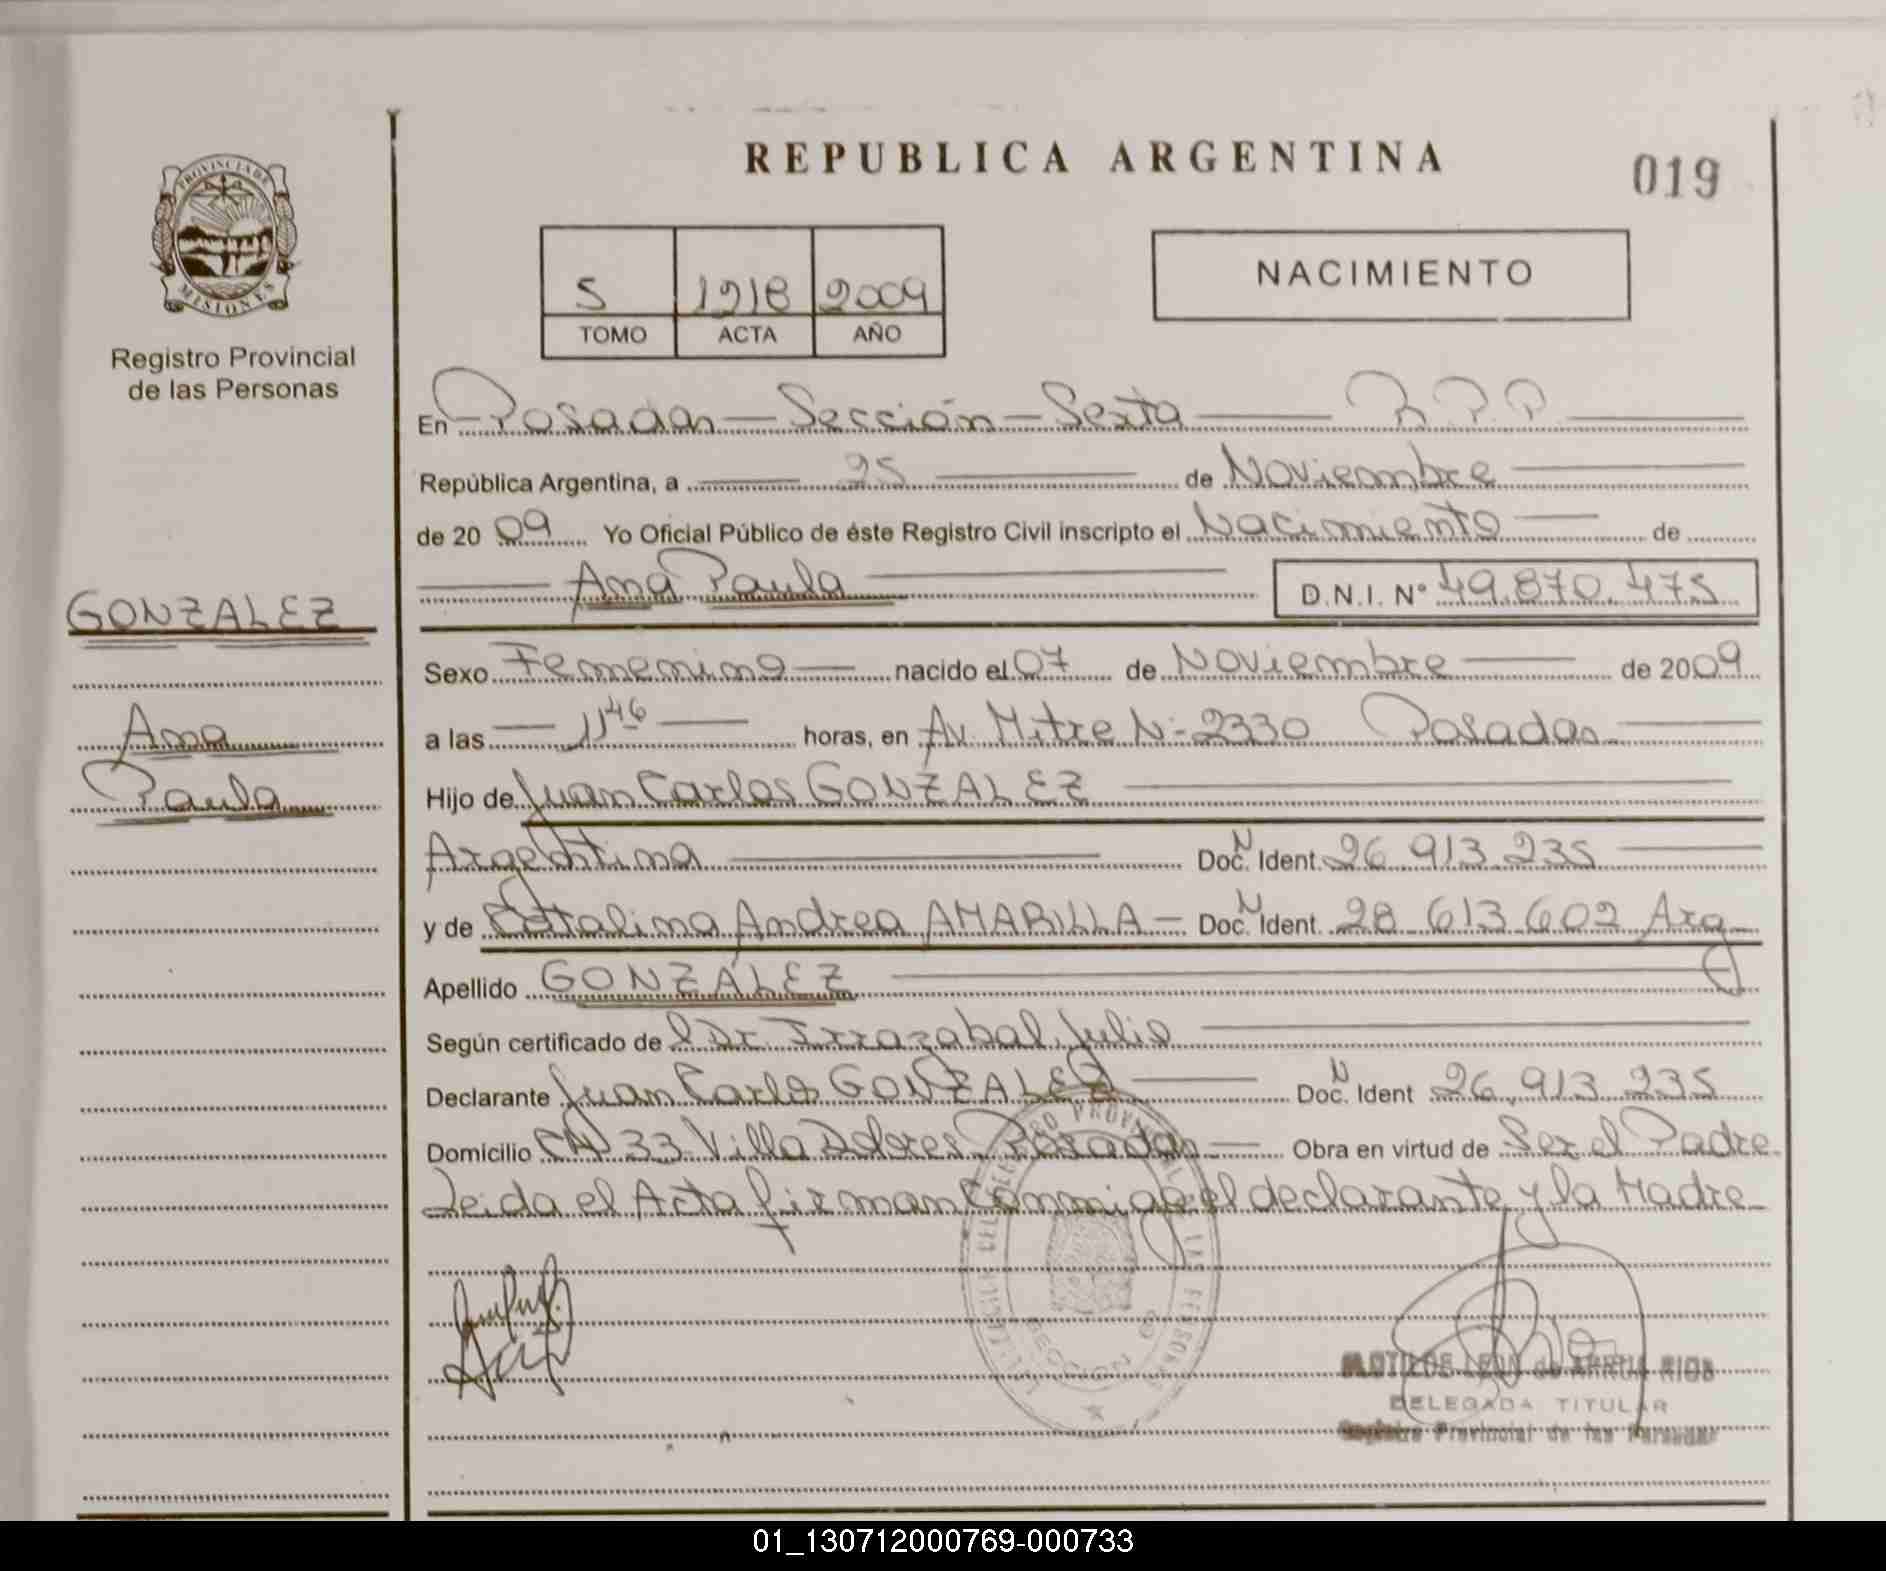 REPUBLICA ARGENTINA
019
PROVINCIA DE
MISIONES
Registro Provincial
de las Personas
5 1218 2009
TOMO ACTA AÑO
NACIMIENTO
En Posadas - Sección - Sexta R.P.P.
República Argentina, a 25 de Noviembre
de 2009 Yo Oficial Público de éste Registro Civil inscripto el Nacimiento de
Ana Paula D.N.I. Nº 49.870.475
GONZALEZ
Ana
Paula
Sexo Femenino nacido el 07 de Noviembre de 2009
a las 11 46 horas, en Av. Mitre N- 2330 Posadas
Hijo de Juan Carlos GONZALEZ
Argentina Doc. N Ident. 26.913.235
y de Catalina Andrea AMARILLA - Doc. N Ident. 28.613.602 Arg
Apellido GONZALEZ
Según certificado de l Dr. Irrazabal, Julio
Declarante Juan Carlos GONZALEZ Doc. N Ident 26.913.235
Domicilio 33 Villa Dolores Posadas Obra en virtud de Ser el Padre
Leida el Acta firman Conmigo el declarante y la Madre
DELEGADA TITULAR
Registro Provincial de las Personas
01_130712000769-000733